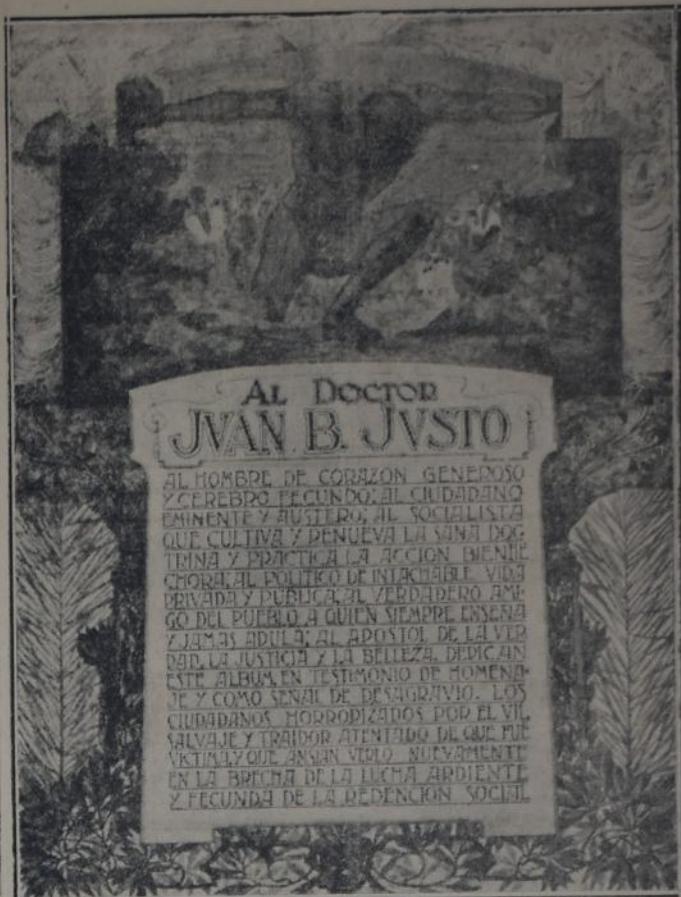 AL DOCTOR
JVAN B. JVSTO
AL HOMBRE DE CORAZON GENEROSO
Y CEREBRO FECUNDO; AL CIUDADANO
EMINENTE Y AUSTERO, AL SOCIALISTA
QUE CULTIVA Y RENUEVA LA SANA DOC-
TRINA Y PRACTICA LA ACCION BIENHE
CHORA; AL POLITICO DE INTACHABLE VIDA
PRIVADA Y PUBLICA, AL VERDADERO AMI-
GO DEL PUEBLO A QUIEN SIEMPRE ENSEÑA
Y JAMAS ADULA; AL APOSTOL DE LA VER
DAD, LA JUSTICIA Y LA BELLEZA, DEDICAN
ESTE ALBUM, EN TESTIMONIO DE HOMENA-
JE Y COMO SEÑAL DE DESAGRAVIO. LOS
CIUDADANOS HORRORIZADOS POR EL VIL,
SALVAJE Y TRAIDOR ATENTADO DE QUE FUE
VICTIMA, Y QUE ANSIAN VERLO NUEVAMENTE
EN LA BRECHA DE LA LUCHA ARDIENTE
Y FECUNDA DE LA REDENCION SOCIAL